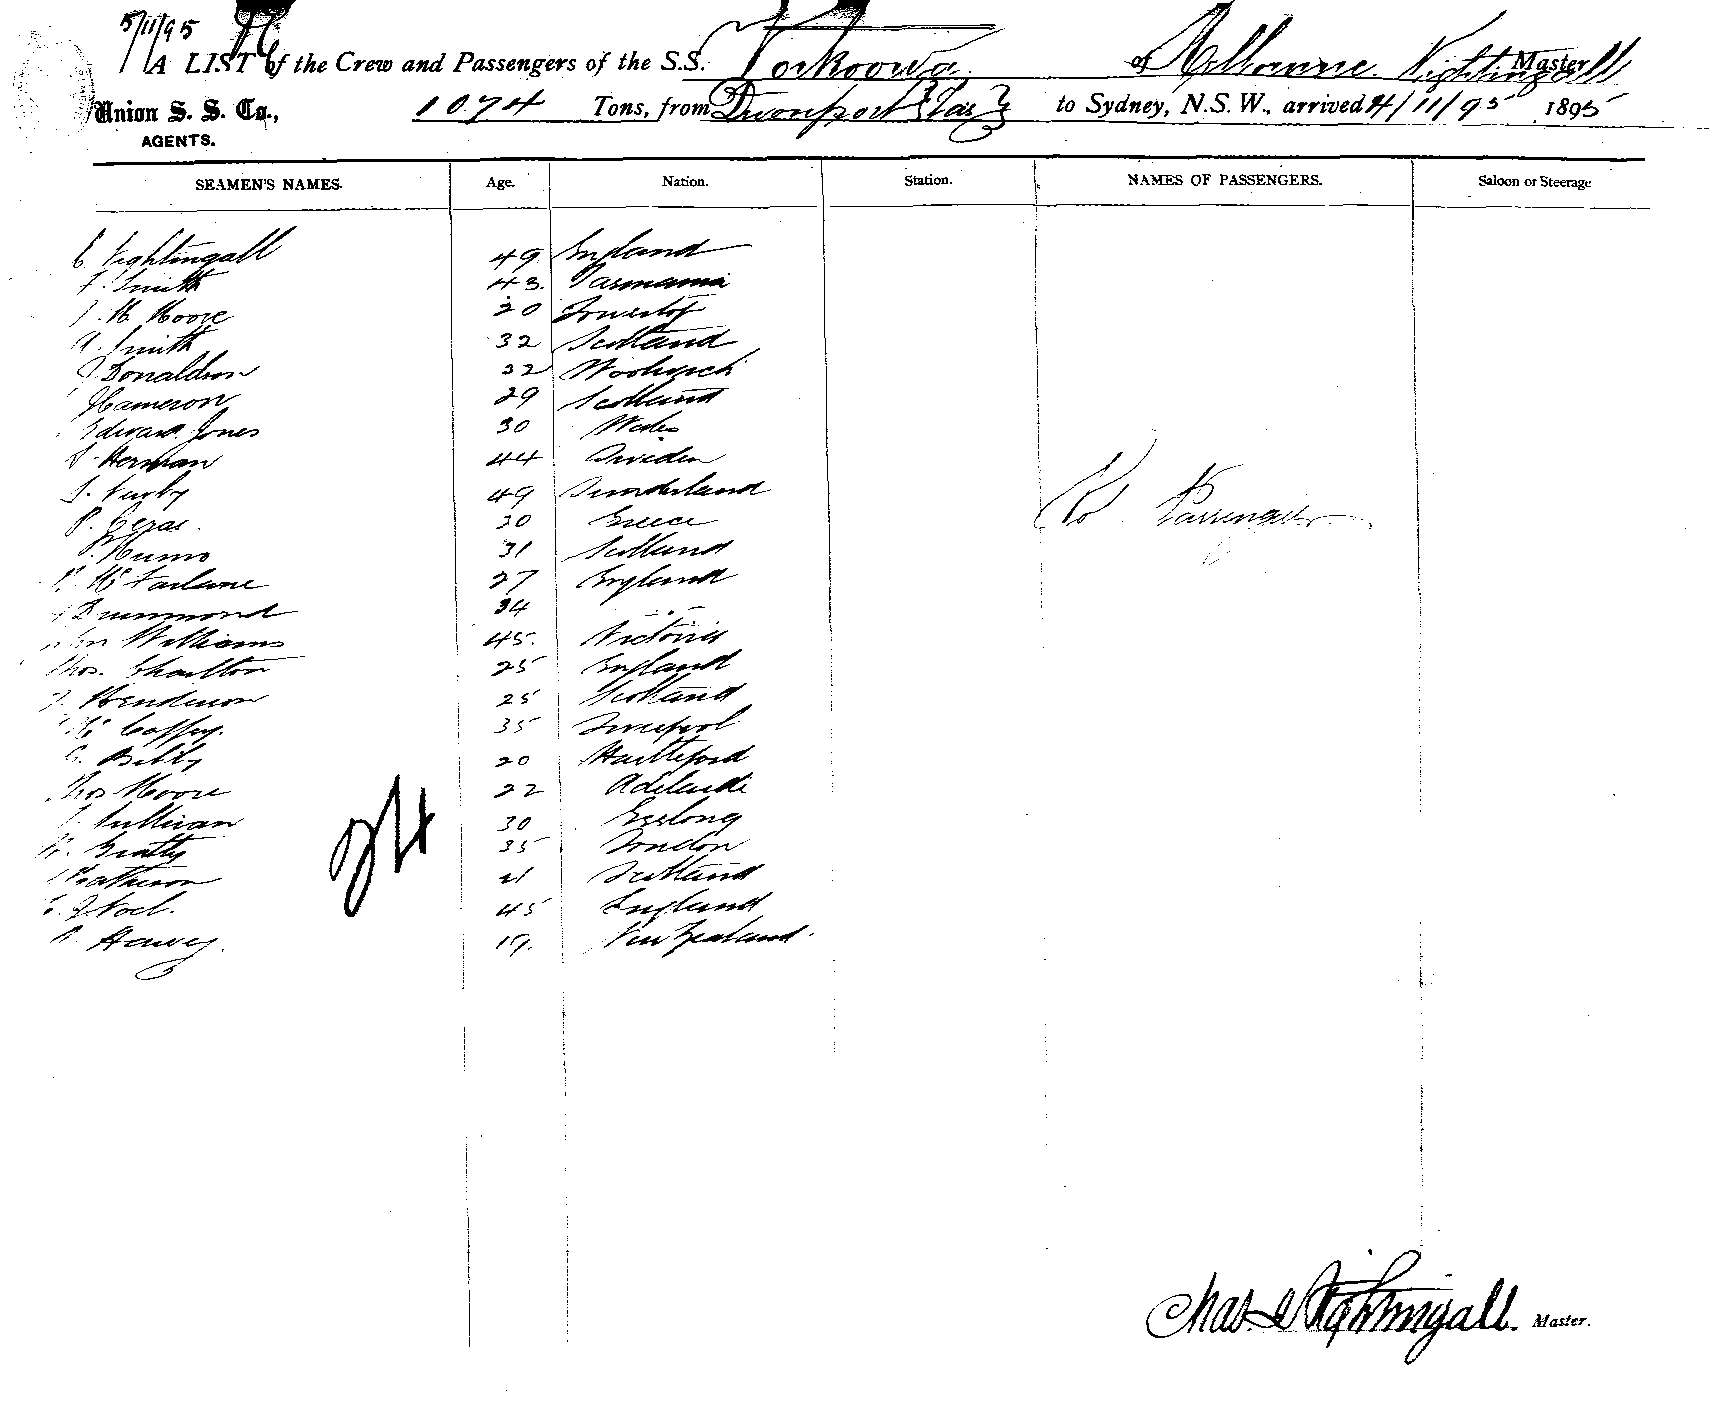 5/11/95
A LIST of the Crew and Passengers of the S.S. of Melbourne Nightingall Master
Union S. S. Co., 1074 Tons, from Devonport Tas to Sydney, N.S.W., arrived 4/11/95 1895
AGENTS.
SEAMEN'S NAMES. Age. Nation. Station. NAMES OF PASSENGERS. Saloon or Steerage
C Nightingall 49 England
Smith 43. Tasmania
H Moore 20
A. Smith 32 Scotland
Donaldson 32 Woolwich
Cameron 29 Scotland
Edward Jones 30 Wales
Herman 44 Sweden
49 Sunderland
P. 30 Greece
No Passengers
Munro 31 Scotland
Mc Farlane 27 England
Drummond 34
Williams 45. Victoria
Thos. Charlton 25 England
Henderson 25 Scotland
Mc Caffry. 35 Liverpool
20
Thos Moore 22 Adelaide
Sullivan 30 Geelong
35 London
24
Matheson 21 Scotland
Noel. 45 England
19. New Zealand.
Chas Nightingall. Master.